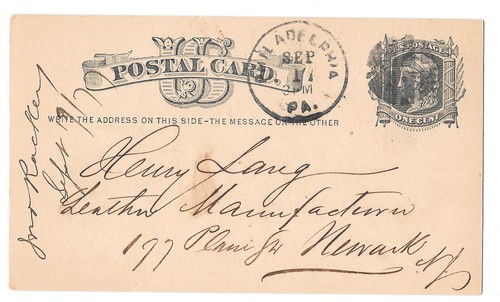 US
POSTAL CARD.
WRITE THE ADDRESS ON THIS SIDE-THE MESSAGE ON THE OTHER
PHILADELPHIA
SEP
17
PM
PA.
U.S. POSTAGE
ONE CENT
Henry Lang
Leather Manufacturer
177
Newark NJ
Sept 17/